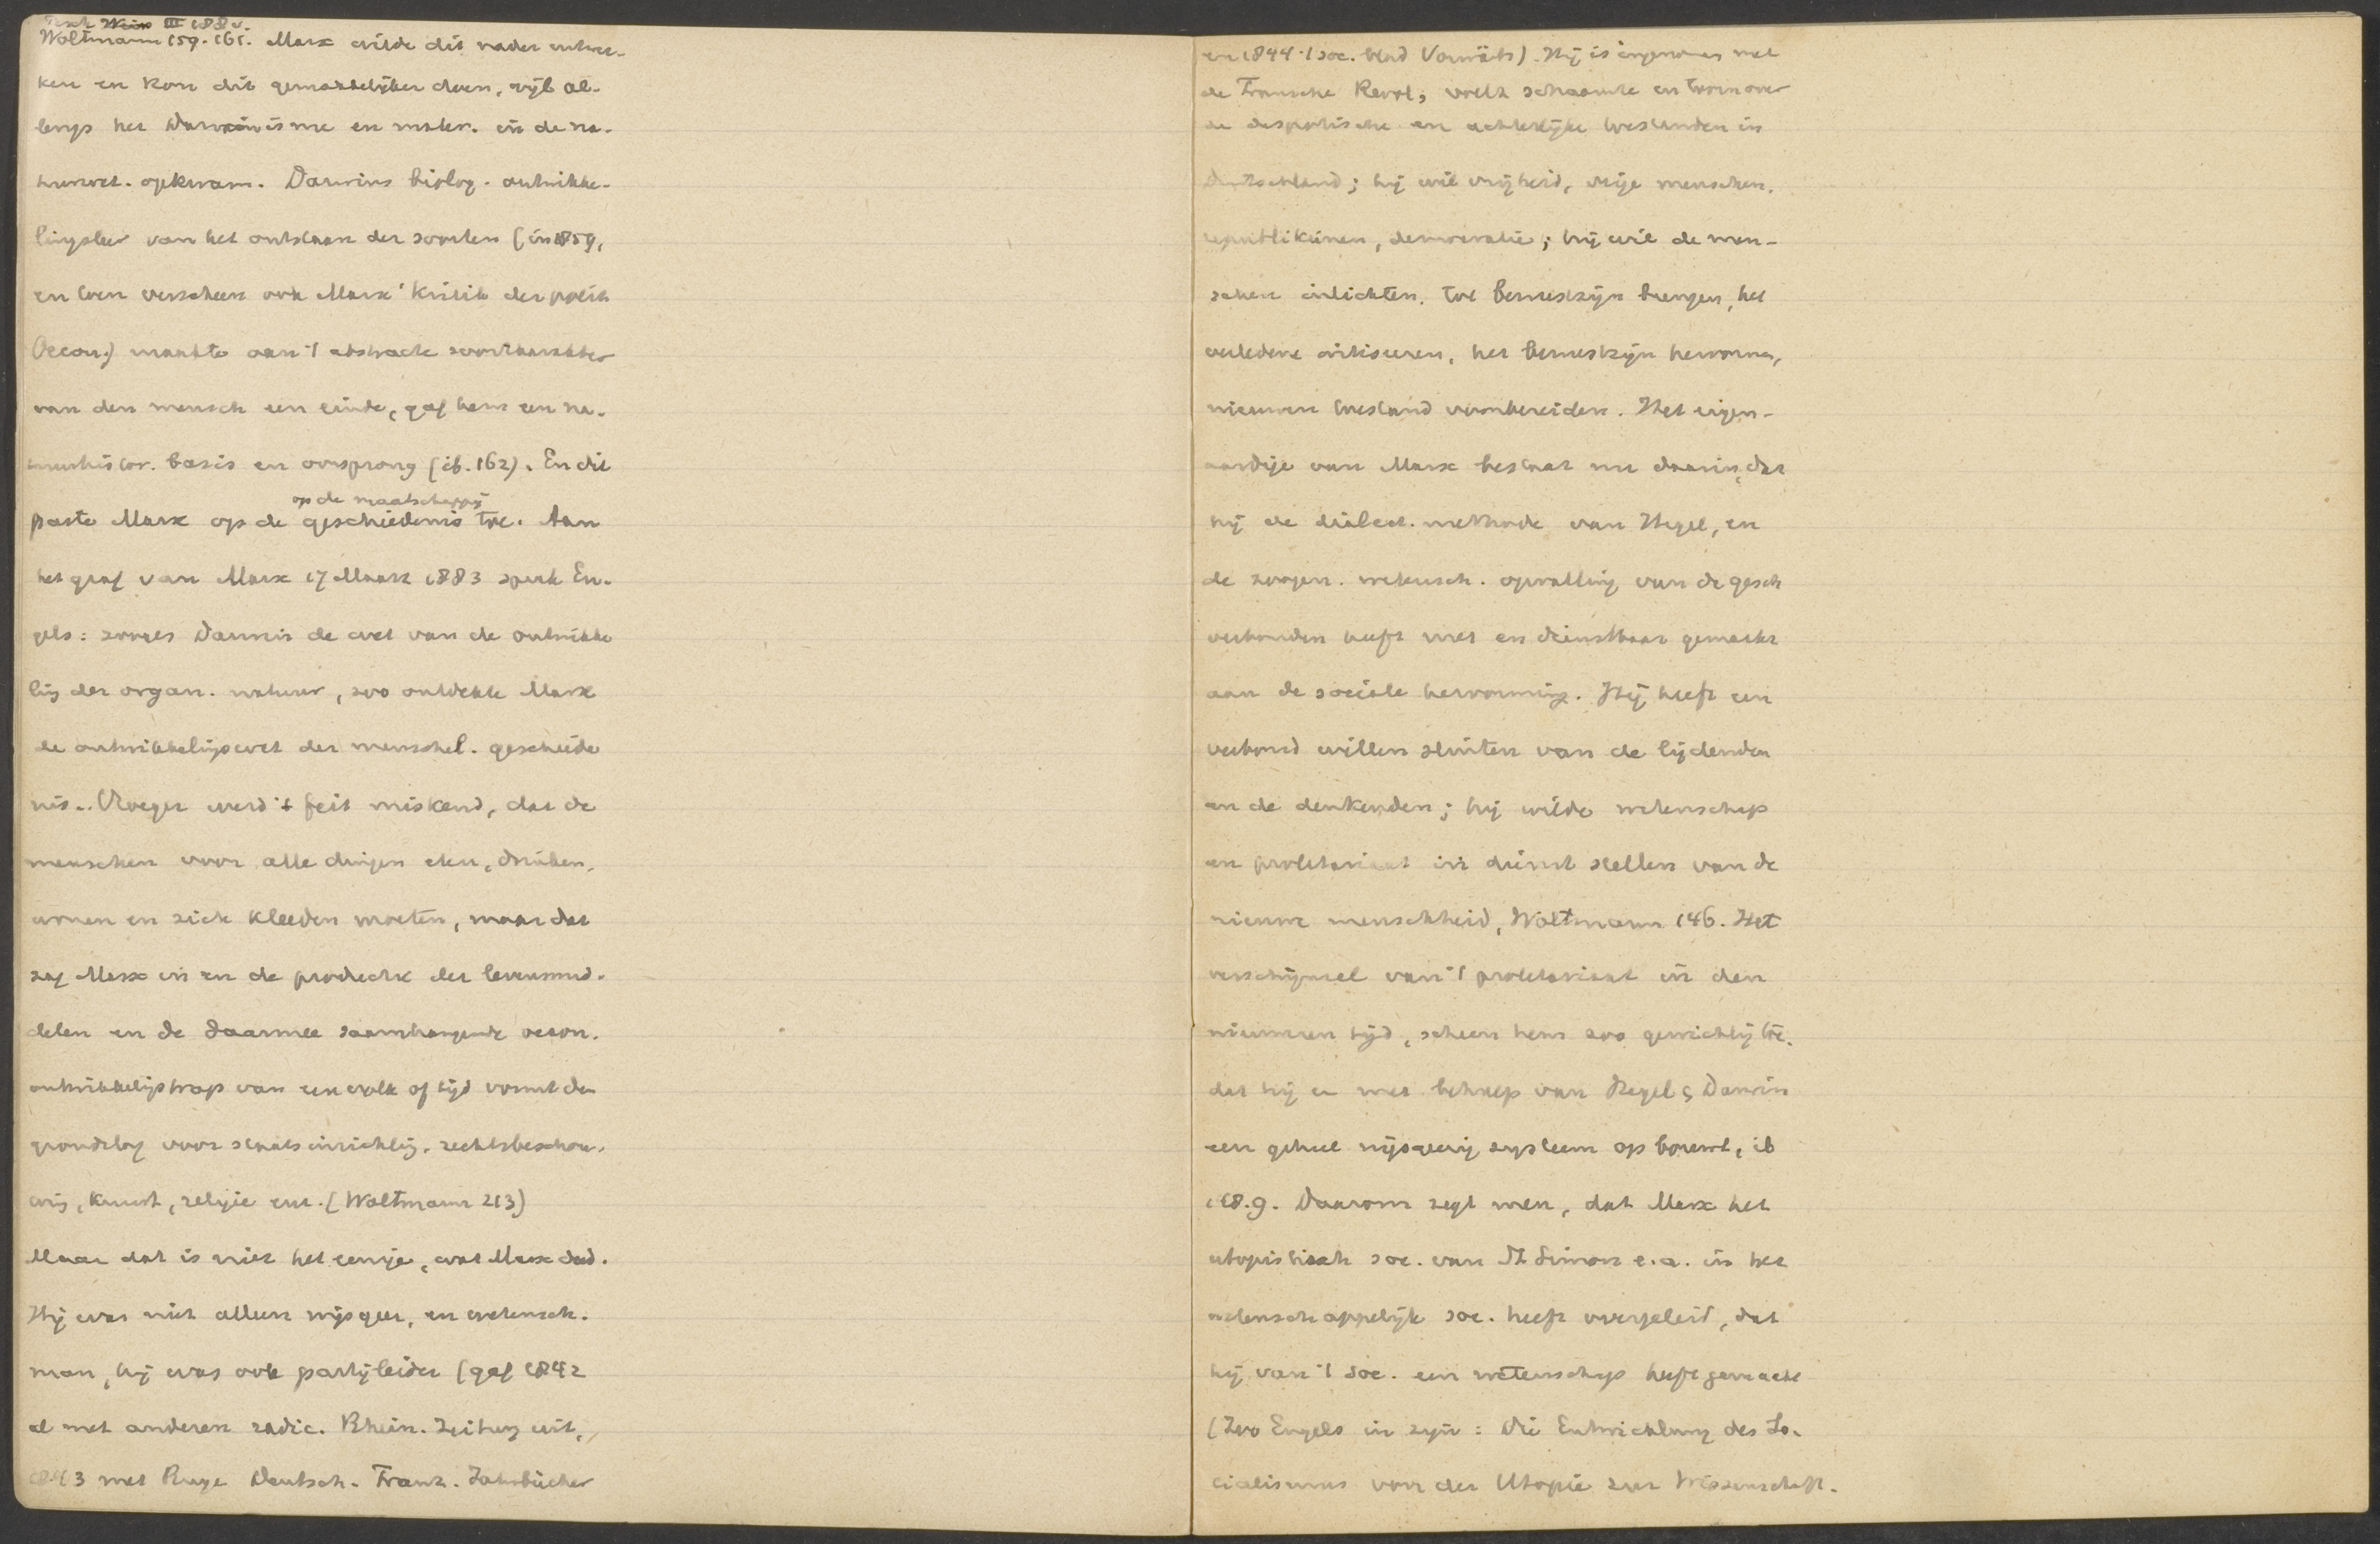 Woltmann 159. 161. Marx wilde dit nader uitwer-
ken en kon dit gemakkelijker doen, wijl al-
lengs het Darwinisme en mater. in de na-
tuurwet. opkwam. Darwins biolog. ontwikke-
lingsleer van het ontstaan der soorten (in 1859,
en toen verscheen ook Marx' Kritik der polit.
Oecon.) maakte aan 't abstracte soortkarakter
van den mensch een einde, gaf hem een na-
tuurhistor. basis en oorsprong (ib. 162). En dit
op de maatschappij
paste Marx op de geschiedenis toe. Aan
het graf van Marx 17 Maart 1883 sprak En-
gels: zooals Darwin de wet van de ontwikke
ling der organ. natuur, zoo ontdekte Marx
de ontwikkelingswet der menschel. geschiede
nis.. Vroeger werd 't feit miskend, dat de
menschen voor alle dingen eten, drinken,
wonen en zich kleeden moeten, maar dat
zag Marx in en de productie der levensmid-
delen en de daarmee saamhangende oecon.
ontwikkelingstrap van een volk of tijd vormt den
grondslag voor staatsinrichting, rechtsbeschou-
wing, kunst, religie enz. (Woltmann 213)
Maar dat is niet het eenige, wat Marx deed.
Hij was niet alleen wijsgeer, en wetensch.
man, hij was ook partijleider (gaf 1842
al met anderen radic. Rhein. Zeitung uit,
1843 met Ruge Deutsch. Franz. Jahrbücher
en 1844 't soc. blad Vorwärts). Hij is ingenomen met
de Fransche Revol., voelt schaamte en toorn over
de despotische en achterlijke toestanden in
Duitschland; hij wil vrijheid, vrije menschen,
republikeinen, democratie; hij wil de men-
schen inlichten, tot bewustzijn brengen, het
verledene critiseeren, het bewustzijn hervormen,
nieuwen toestand voorbereiden. Het eigen-
aardige van Marx bestaat nu daarin, dat
hij de dialect. methode van Hegel, en
de zoogen. wetensch. opvatting van de gesch
verbonden heeft met en dienstbaar gemaakt
aan de sociale hervorming. Hij heeft een
verbond willen sluiten van de lijdenden
en de denkenden; hij wilde wetenschap
en proletariaat in dienst stellen van de
nieuwe menschheid, Woltmann 146. Het
verschijnsel van 't proletariaat in den
nieuweren tijd, scheen hem zoo gewichtig toe,
dat hij er met behulp van Hegel & Darwin
een geheel wijsgeerig systeem op bouwt, ib
148.9. Daarom zegt men, dat Marx het
utopistisch soc. van St Simon e.a. in het
wetenschappelijk soc. heeft overgeleid, dat
hij van 't soc. een wetenschap heeft gemaakt
(Zoo Engels in zijn: Die Entwicklung des So-
cialismus von der Utopie zur Wissenschaft.